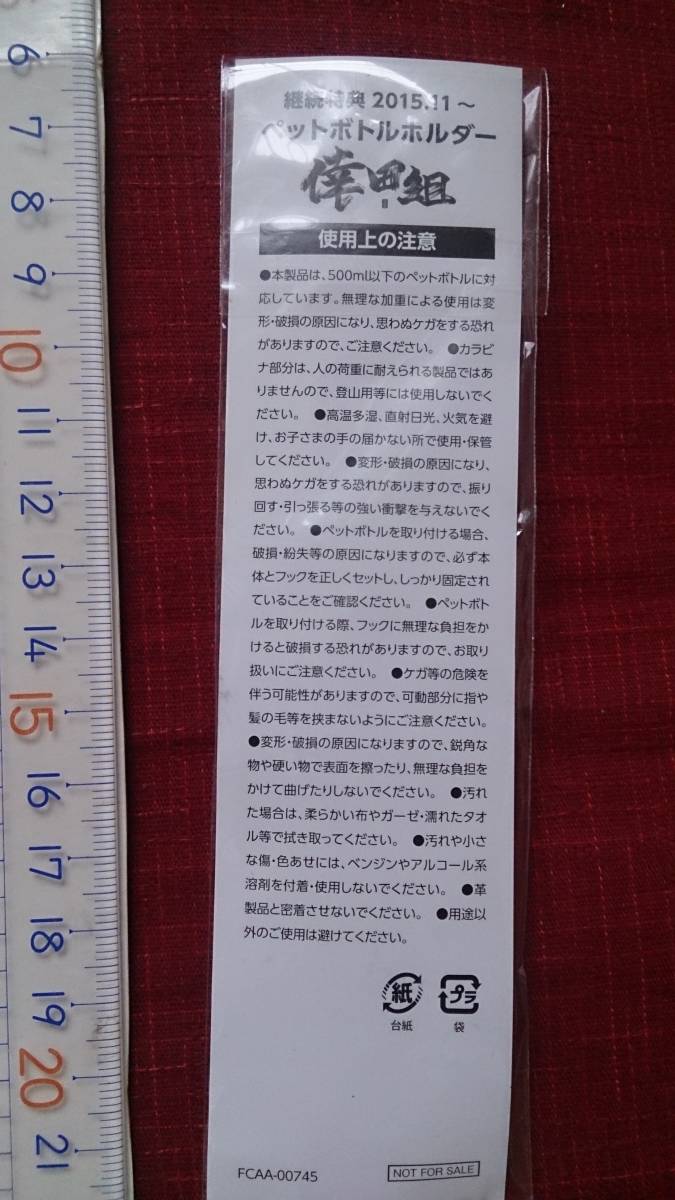 6
7
8
9
10
11
12
13
14
15
16
17
18
19
20
21
継続特典 2015.11～
ペットボトルホルダー
倖田組
使用上の注意
●本製品は、500ml以下のペットボトルに対
応しています。無理な加重による使用は変
形・破損の原因になり、思わぬケガをする恐れ
がありますので、ご注意ください。 ●カラビ
ナ部分は、人の荷重に耐えられる製品ではあ
りませんので、登山用等には使用しないでく
ださい。 ●高温多湿、直射日光、火気を避
け、お子さまの手の届かない所で使用・保管
してください。 ●変形・破損の原因になり、
思わぬケガをする恐れがありますので、振り
回す・引っ張る等の強い衝撃を与えないでく
ださい。 ●ペットボトルを取り付ける場合、
破損・紛失等の原因になりますので、必ず本
体とフックを正しくセットし、しっかり固定され
ていることをご確認ください。 ●ペットボト
ルを取り付ける際、フックに無理な負担をか
けると破損する恐れがありますので、お取り
扱いにご注意ください。 ●ケガ等の危険を
伴う可能性がありますので、可動部分に指や
髪の毛等を挟まないようにご注意ください。
●変形・破損の原因になりますので、鋭角な
物や硬い物で表面を擦ったり、無理な負担を
かけて曲げたりしないでください。 ●汚れ
た場合は、柔らかい布やガーゼ・濡れたタオ
ル等で拭き取ってください。 ●汚れや小さ
な傷・色あせには、ベンジンやアルコール系
溶剤を付着・使用しないでください。 ●革
製品と密着させないでください。 ●用途以
外のご使用は避けてください。
紙 プラ
台紙 袋
FCAA-00745 NOT FOR SALE